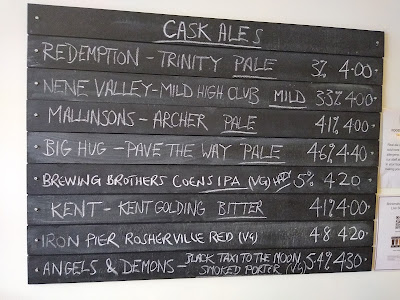 CASK ALES
REDEMPTION - TRINITY PALE 3% 4.00
NENE VALLEY - MILD HIGH CLUB MILD 33% 400
MALLINSONS - ARCHER PALE 41% 4.00
BIG HUG - PAVE THE WAY PALE 46% 4.40
BREWING BROTHERS COENS IPA (VG) HAZY 5% 420
KENT - KENT GOLDING BITTER 41% 4.00
IRON PIER ROSHERVILLE RED (VG) 48 420
ANGELS & DEMONS - BLACK TAXI TO THE MOON SMOKED PORTER (VG) 54% 430